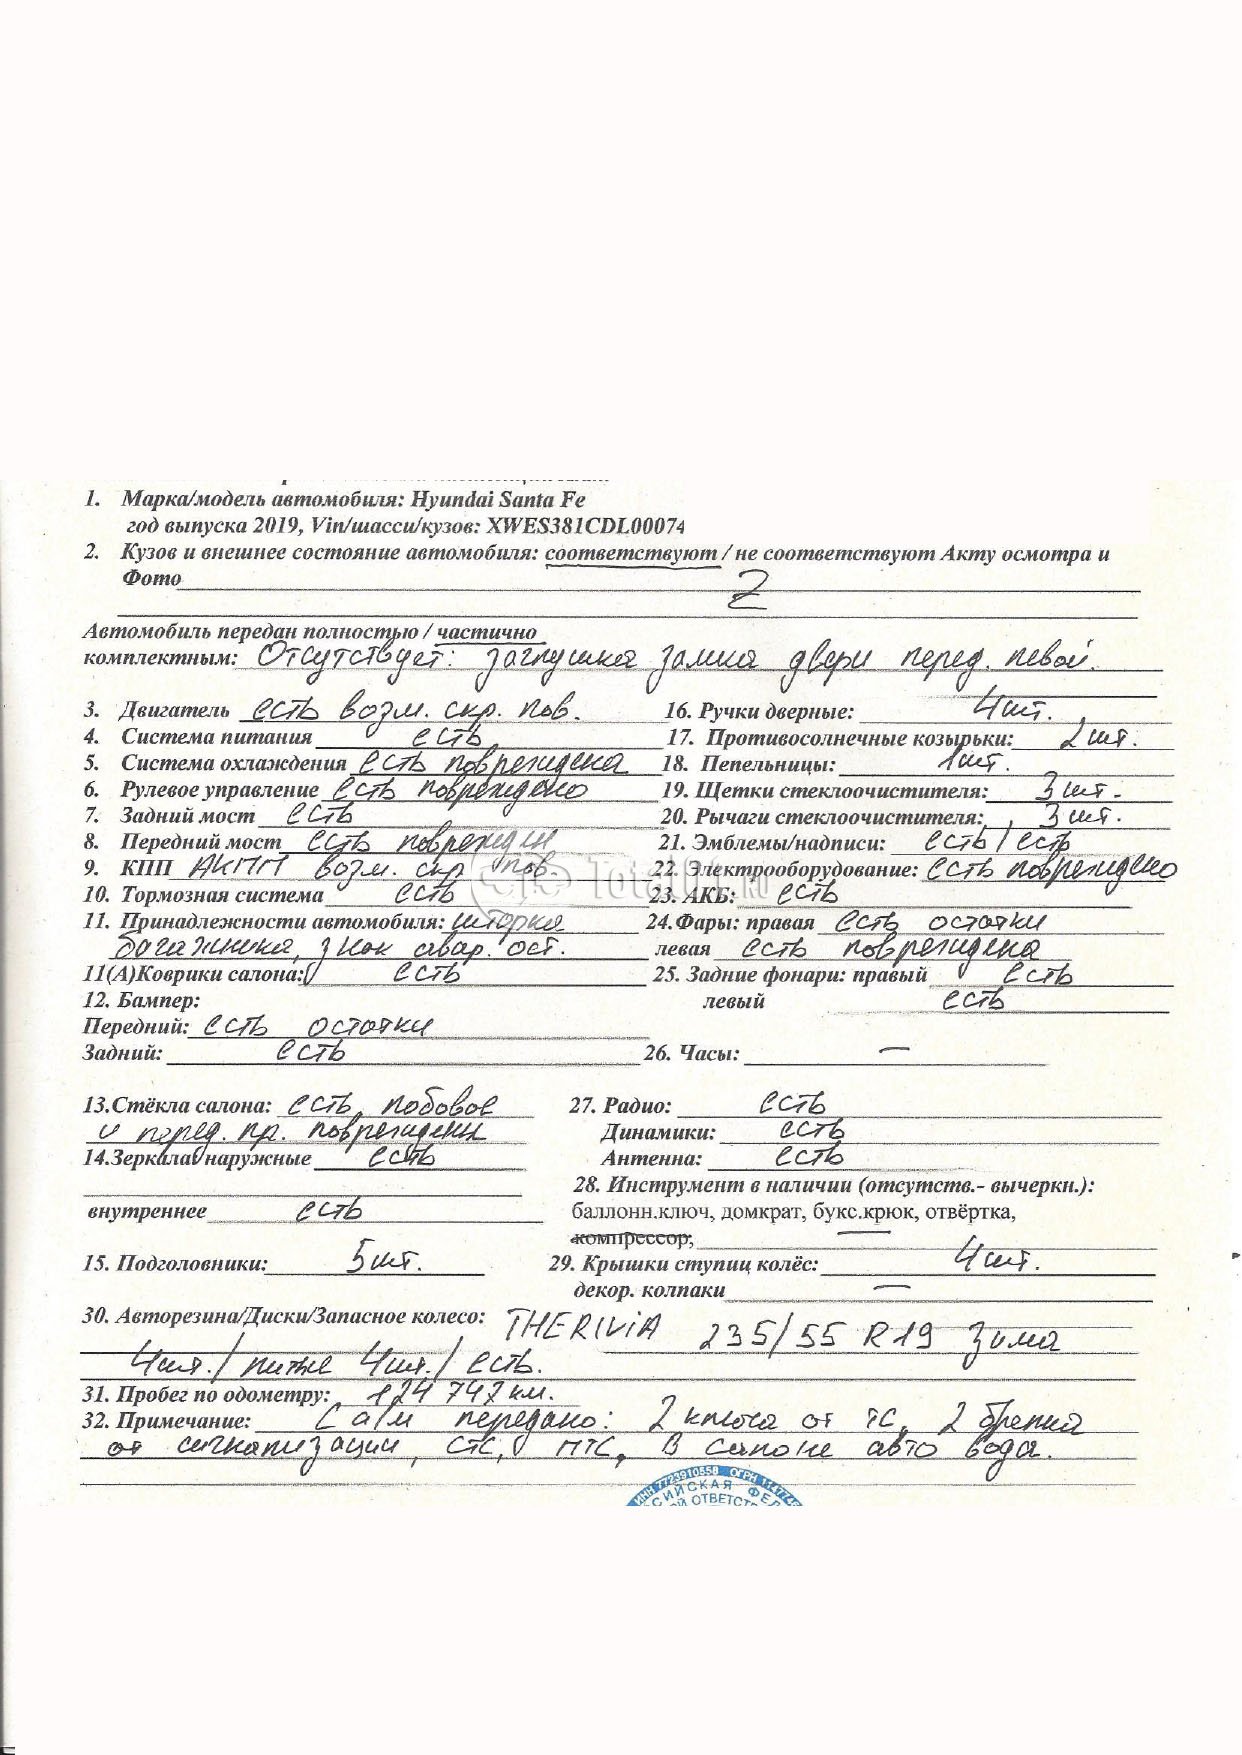 1. Марка/модель автомобиля: Hyundai Santa Fe
год выпуска 2019, Vin/шасси/кузов: XWES381CDL00074
2. Кузов и внешнее состояние автомобиля: соответствуют / не соответствуют Акту осмотра и
Фото Z
Автомобиль передан полностью / частично
комплектным: Отсутствует: заглушка замка двери перед. левой.
3. Двигатель есть возм. скр. пов. 16. Ручки дверные: 4шт.
4. Система питания есть 17. Противосолнечные козырьки: 2шт.
5. Система охлаждения есть повреждена 18. Пепельницы: 1шт.
6. Рулевое управление есть повреждено 19. Щетки стеклоочистителя: 3 шт.
7. Задний мост есть 20. Рычаги стеклоочистителя: 3 шт.
8. Передний мост есть поврежден 21. Эмблемы/надписи: есть / есть
9. КПП АКПП возм. скр пов 22. Электрооборудование: есть повреждено
Total01.RU
10. Тормозная система есть 23. АКБ: есть
11. Принадлежности автомобиля: шторка 24.Фары: правая есть остатки
багажника, знак авар. ост. левая есть повреждена
11(А)Коврики салона: есть 25. Задние фонари: правый есть
12. Бампер: левый есть
Передний: есть остатки
Задний: есть 26. Часы: —
13.Стёкла салона: есть, лобовое 27. Радио: есть
и перед. пр. поврежден Динамики: есть
14.Зеркала наружные есть Антенна: есть
28. Инструмент в наличии (отсутств.- вычеркн.):
внутреннее есть баллонн.ключ, домкрат, букс.крюк, отвёртка,
компрессор, —
15. Подголовники: 5шт. 29. Крышки ступиц колёс: 4шт.
декор. колпаки —
30. Авторезина/Диски/Запасное колесо: THERIVIA 235/55 R19 Зима
4шт./ литые 4шт./ есть.
31. Пробег по одометру: 124 747км.
32. Примечание: С а/м передано: 2 ключа от ТС, 2 брелка
от сигнализации, СТС, ПТС, В салоне авто вода.
ИНН 7723910558 ОГРН